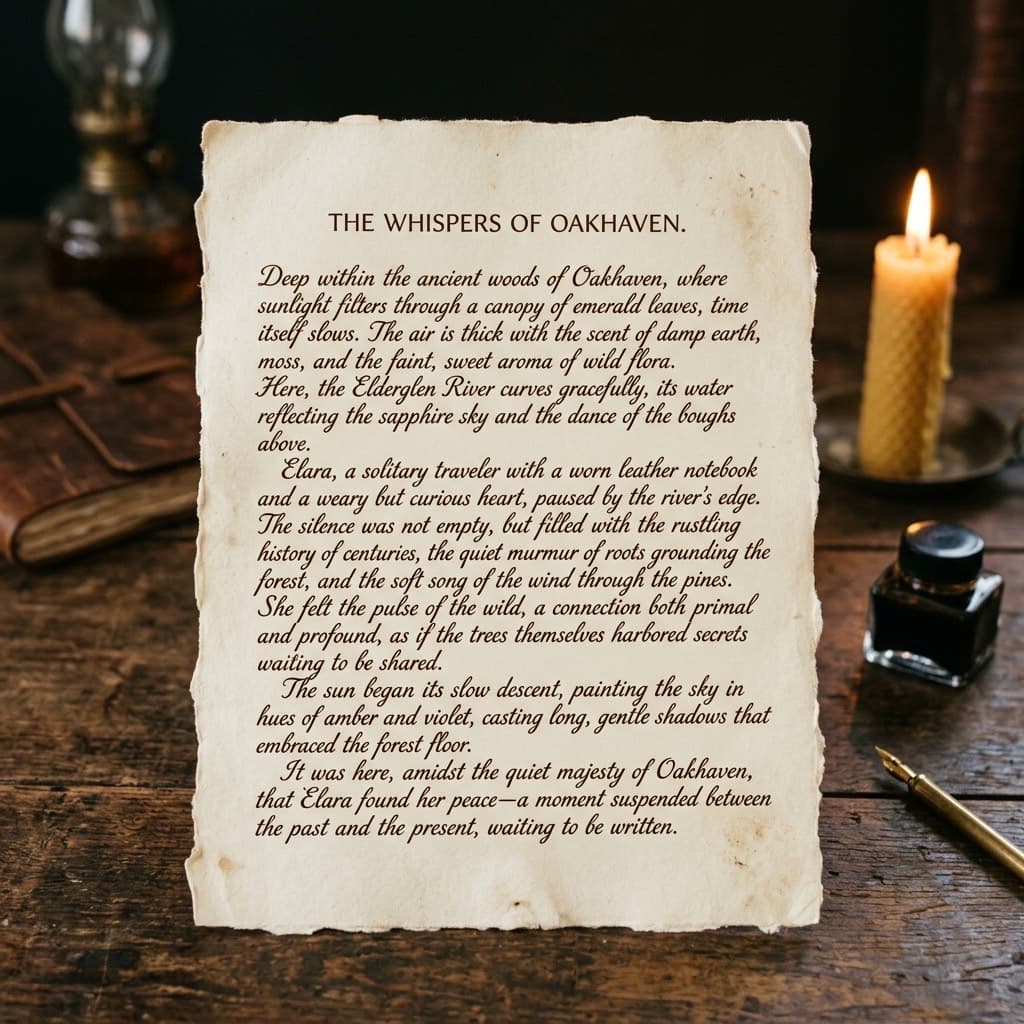 THE WHISPERS OF OAKHAVEN.
Deep within the ancient woods of Oakhaven, where
sunlight filters through a canopy of emerald leaves, time
itself slows. The air is thick with the scent of damp earth,
moss, and the faint, sweet aroma of wild flora.
Here, the Elderglen River curves gracefully, its water
reflecting the sapphire sky and the dance of the boughs
above.
Elara, a solitary traveler with a worn leather notebook
and a weary but curious heart, paused by the river's edge.
The silence was not empty, but filled with the rustling
history of centuries, the quiet murmur of roots grounding the
forest, and the soft song of the wind through the pines.
She felt the pulse of the wild, a connection both primal
and profound, as if the trees themselves harbored secrets
waiting to be shared.
The sun began its slow descent, painting the sky in
hues of amber and violet, casting long, gentle shadows that
embraced the forest floor.
It was here, amidst the quiet majesty of Oakhaven,
that Elara found her peace—a moment suspended between
the past and the present, waiting to be written.